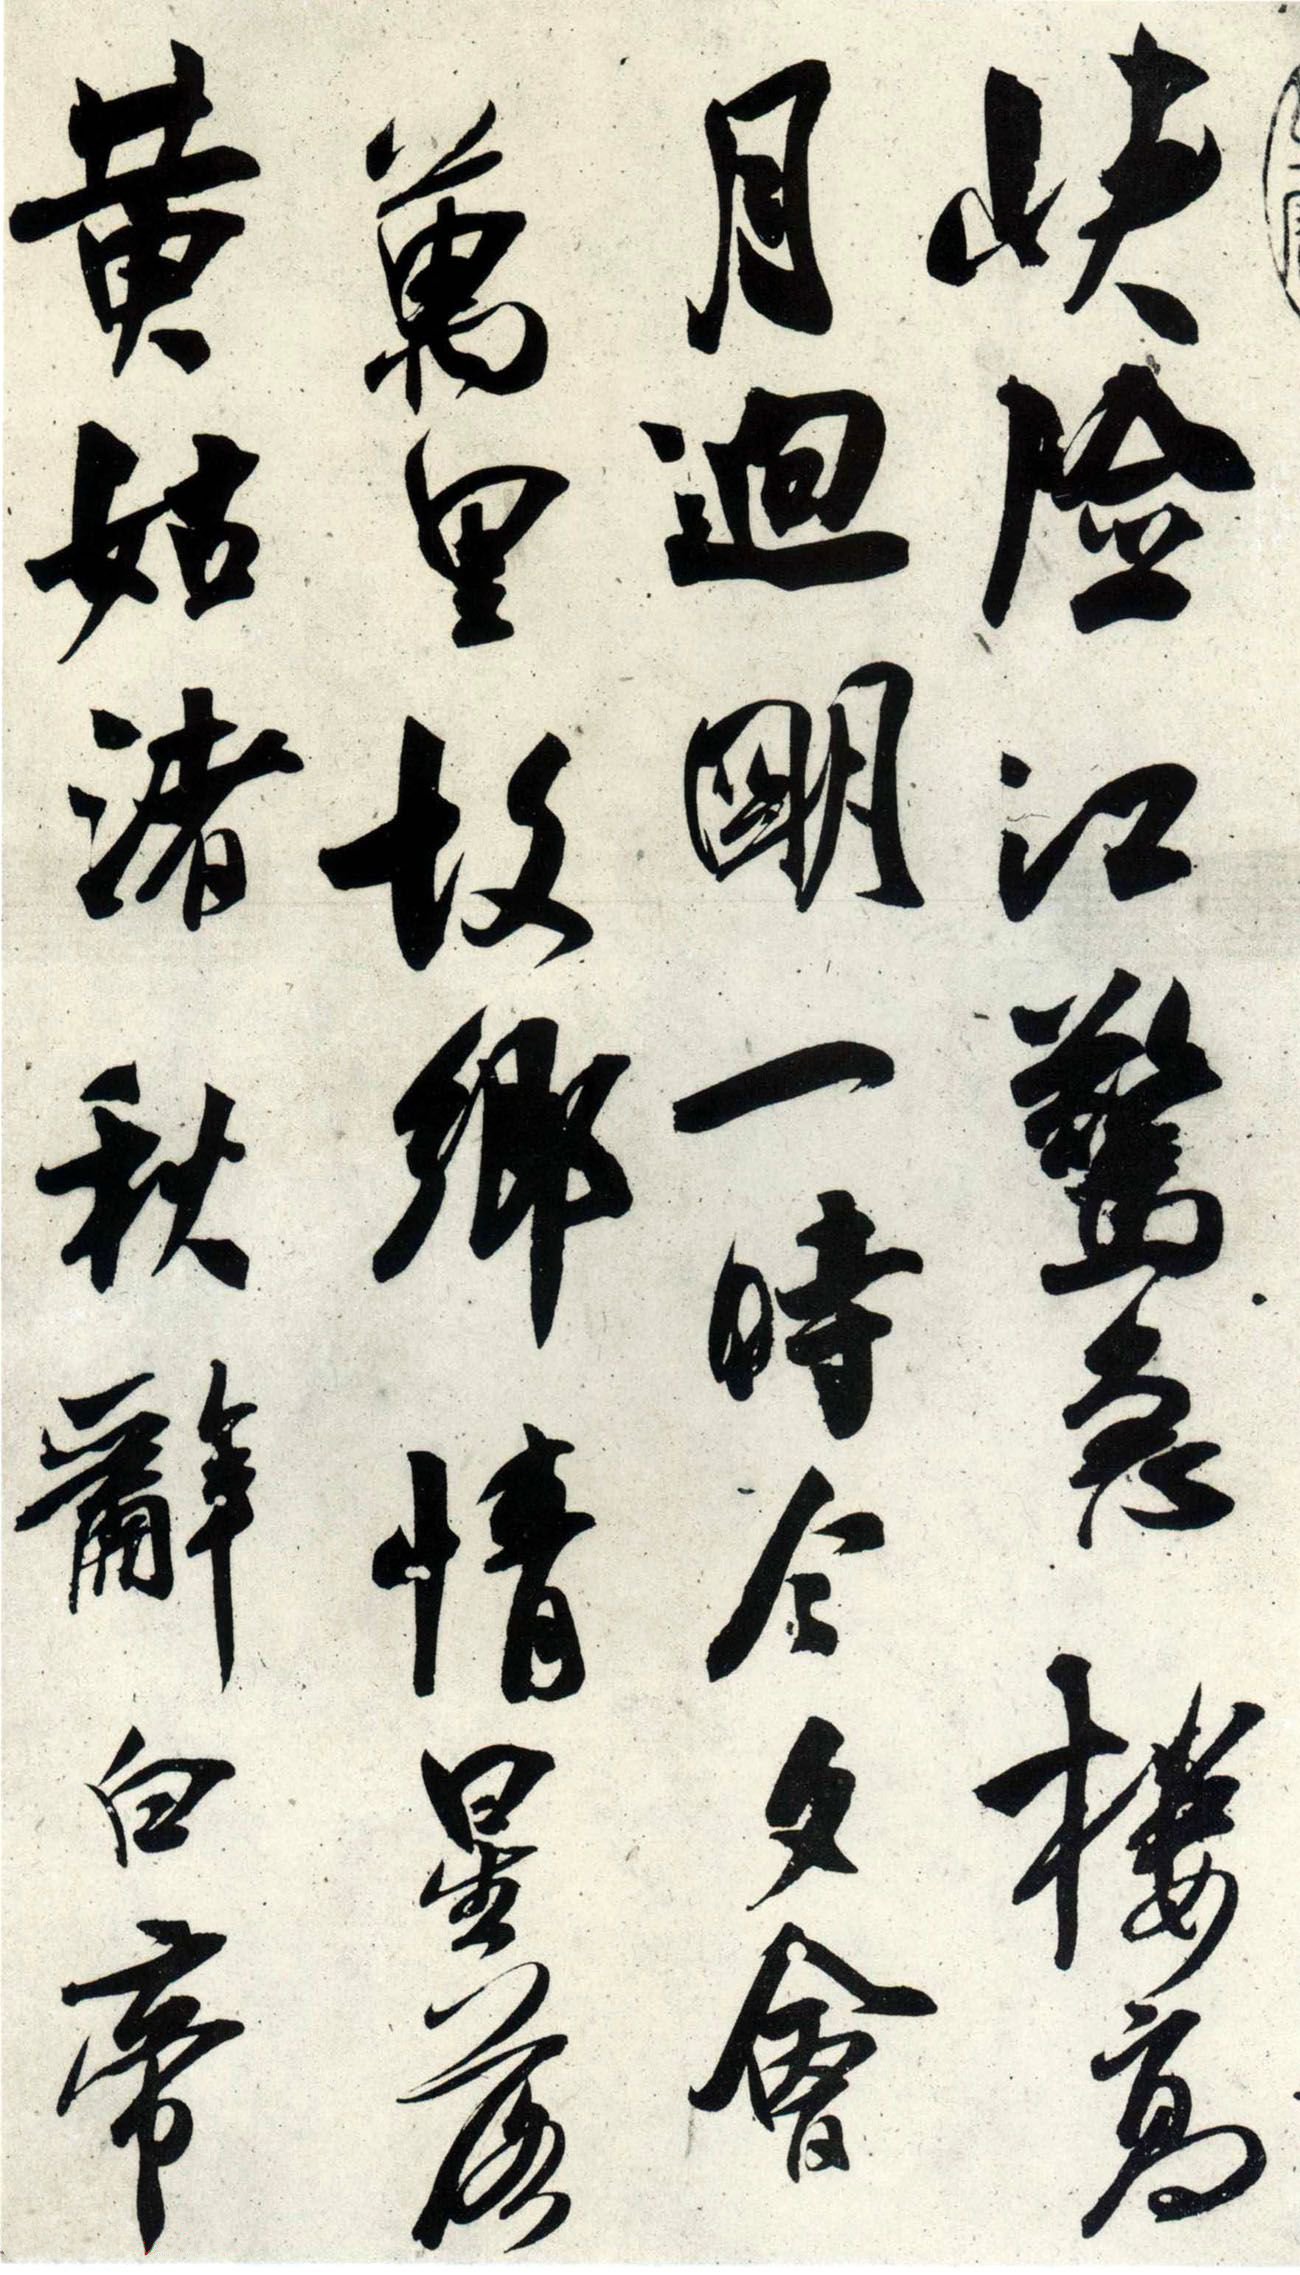 峡險江驚急樓高
月迥明一時今夕會
萬里故鄉情星落
黃姑渚秋辭白帝